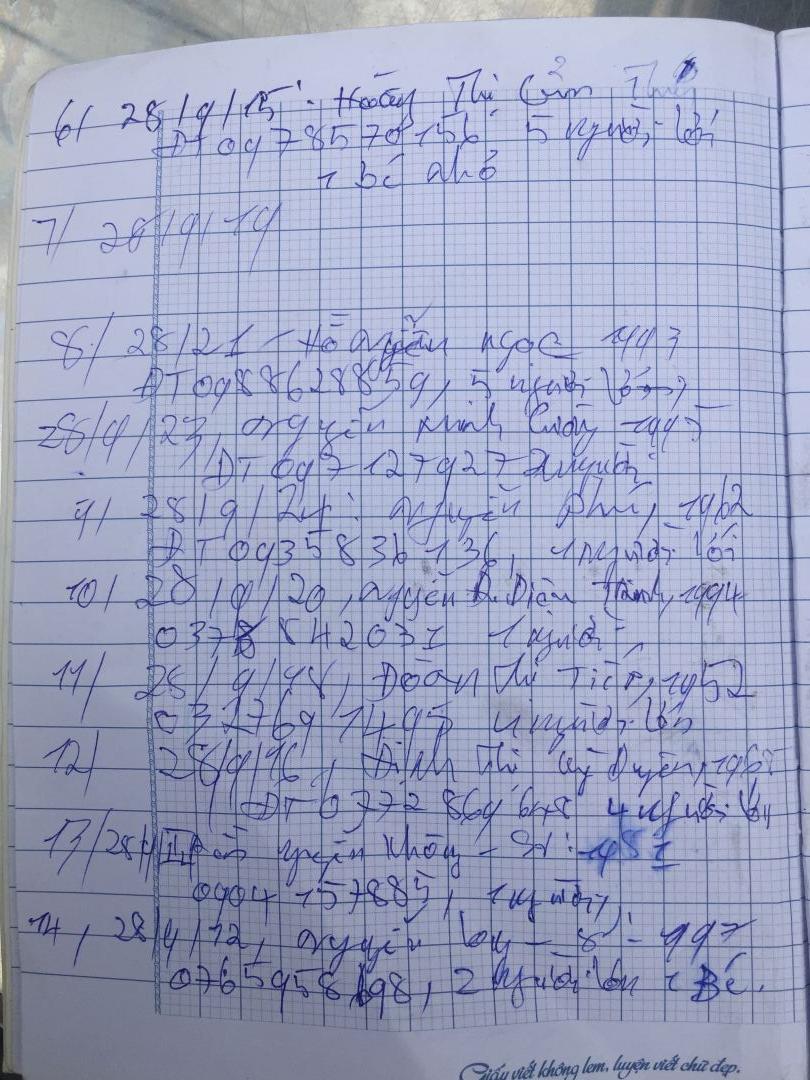 6/ 28/9/15 - Hoàng Thị Cẩm
ĐT 0978570156 5 người lớn
1 bé nhỏ
7/ 28/9/19
8/ 28/21 - Hồ Nguyễn ngọc 1993
ĐT 0988628859, 5 người lớn
28/9/23, Nguyễn 1995
ĐT 097127927 người
9/ 28/9/24: Nguyễn Phú, 1962
ĐT 0935836136, 1 người lớn
10/ 28/9/20, Nguyễn Diệu 1994
0378842031 1 người
11/ 28/9/98, Đoàn Thị Tiết, 1952
0327691495 4 người lớn
12/ 28/9/96, Đinh Thị Duyên, 196
ĐT 0772869648 4 người lớn
13/ 28/9 Nguyễn - 1951
0904157885, 1 người
14, 28/9/12, Nguyễn - 997
0765958698, 2 người lớn 1 Bé.
Giấy viết không lem, luyện viết chữ đẹp.